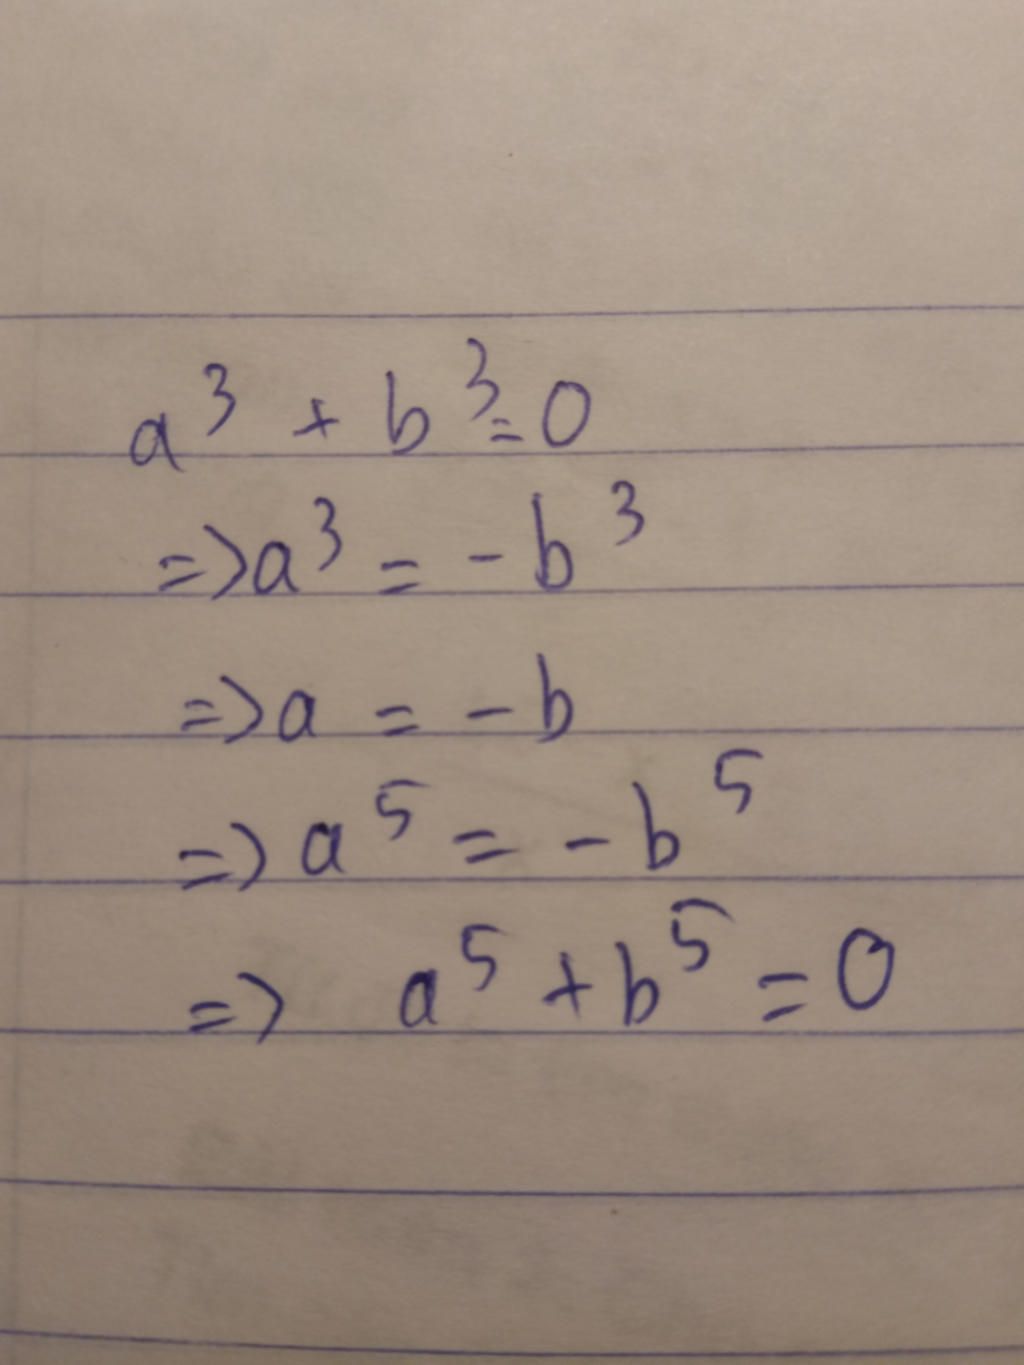 a³ + b³ = 0
=> a³ = - b³
=> a = - b
=> a⁵ = - b⁵
=> a⁵ + b⁵ = 0